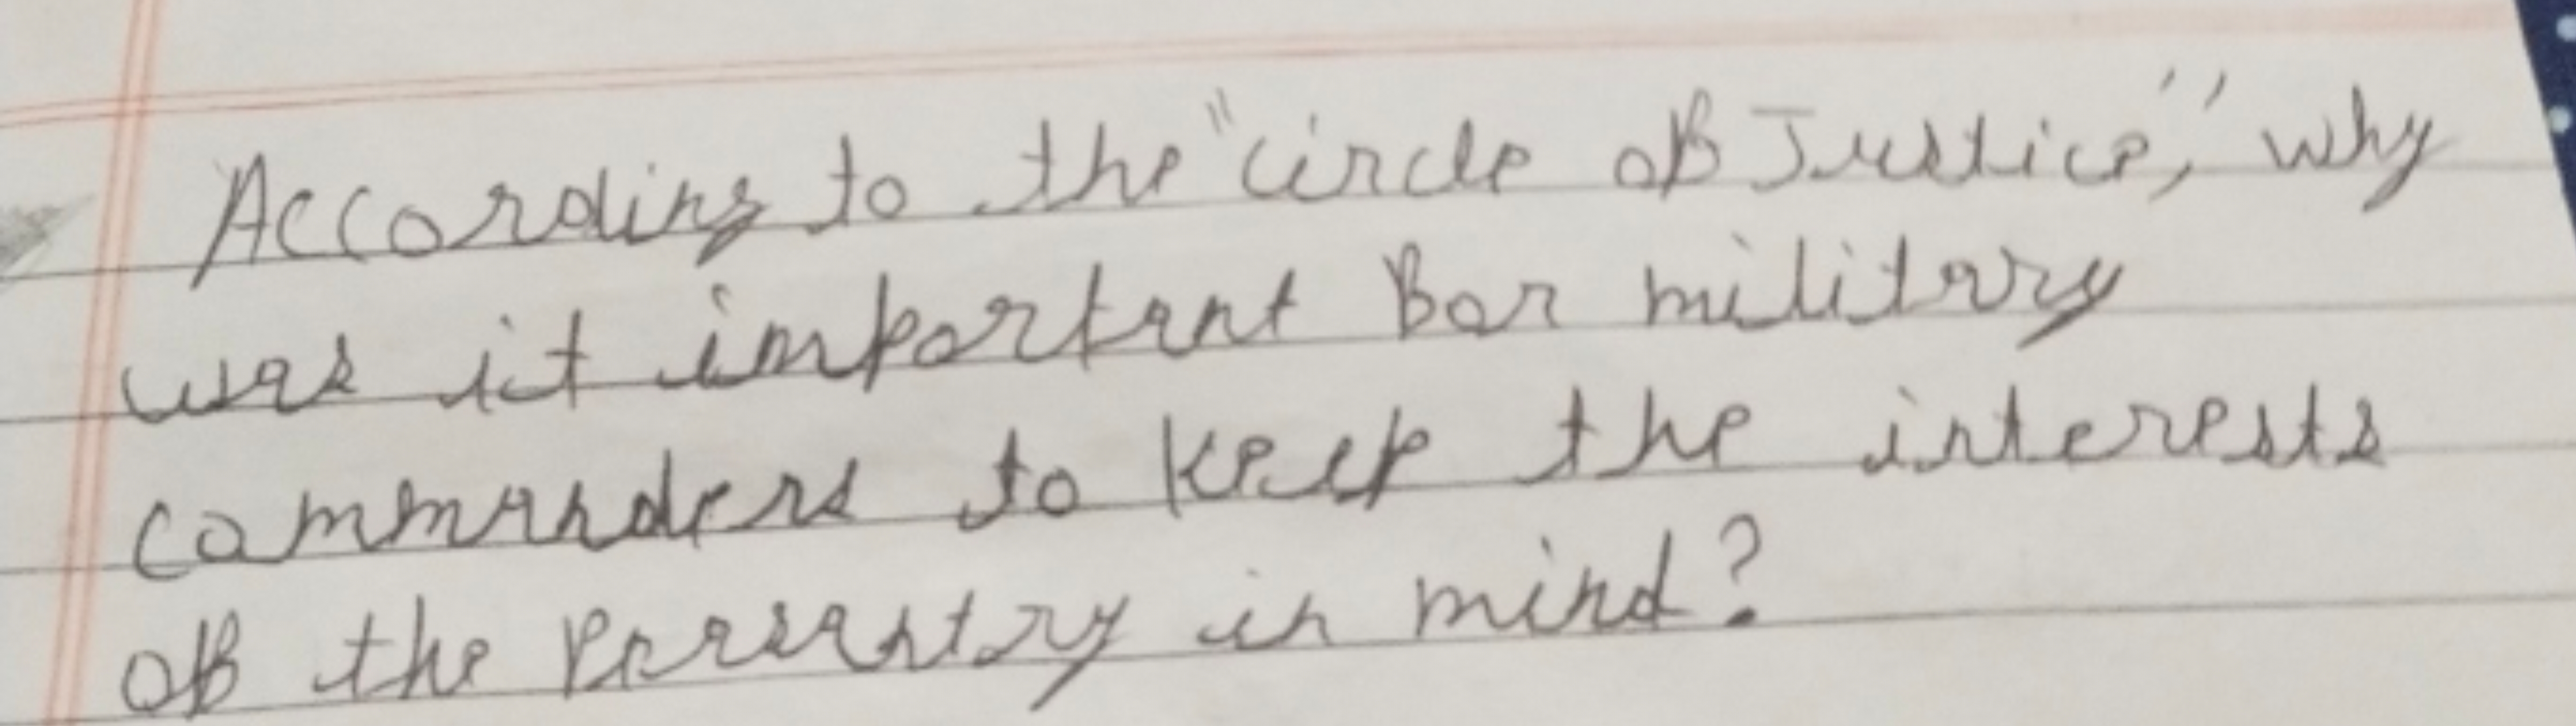 According to the "circle of Justice," why
was it important for military
commanders to keep the interests
of the peasantry in mind?